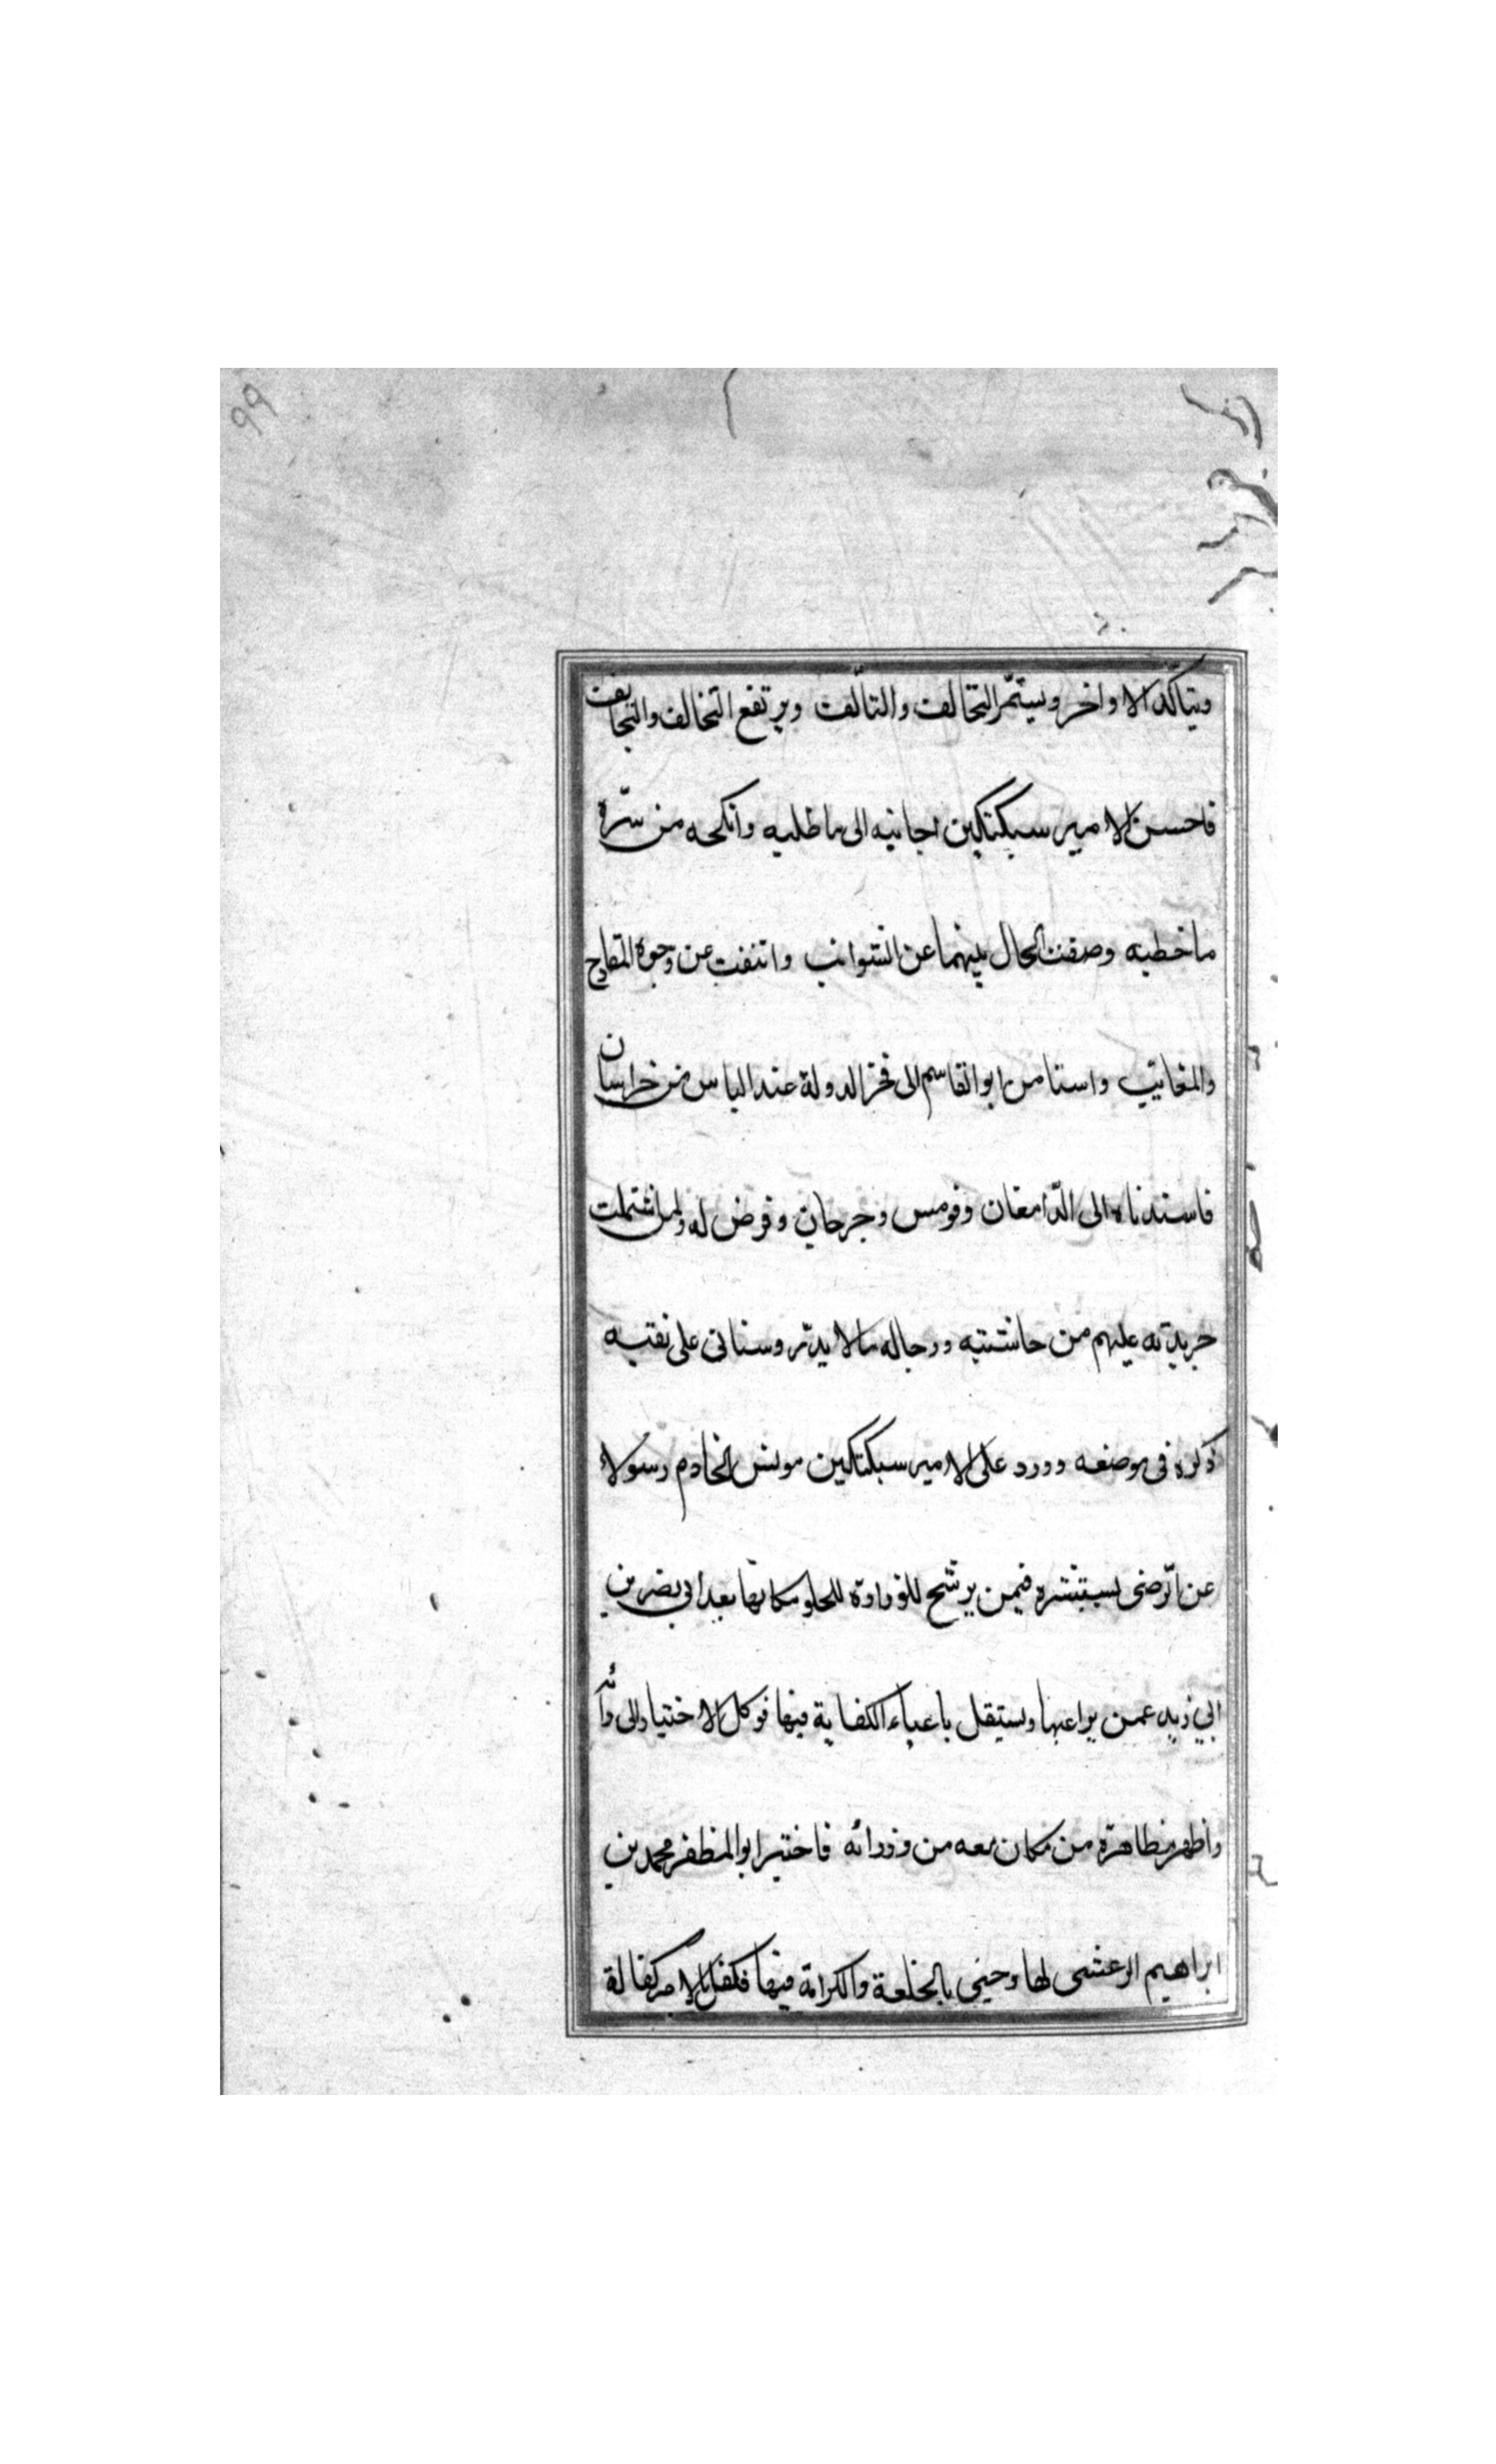 ويتاكّد الاواخر ويستمّر التحالف والتالّف ويرتفع التخالف والتجانف
فاحسن الامير سبكتكين اجابته الى ما طلبه وانكحه من سرّه
ما خطبه وصفت الحال بينهما عن الشوائب وانتفت عن وجوه المقابح
والمعايب واستامن ابو القاسم الى فخر الدولة عند الياس من خراسان
فاستدناه الى الدّامغان وقومس وجرجان وفرض له ولمن اشتملت
جريدته عليهم من حاشيته ورجاله مالا يدّر وسناتى على بقيه
ذكره فى موضعه وورد على الامير سبكتكين مونس الخادم رسولا
عن الرّضى يستشيره فيمن يرشّح للوزارة للخلو مكانها بعد ابى نصر بن
ابي زيد عمن يراعيها ويستقل باعباء الكفاية فيها فوكل الاختيار الى رأيه
واظهر مظاهرة من كان معه من وزرائه فاختير ابو المظفر محمد بن
ابراهيم البرغشى لها وحبى بالخلعة والكرامة فيها فكفل بالامر كفالة